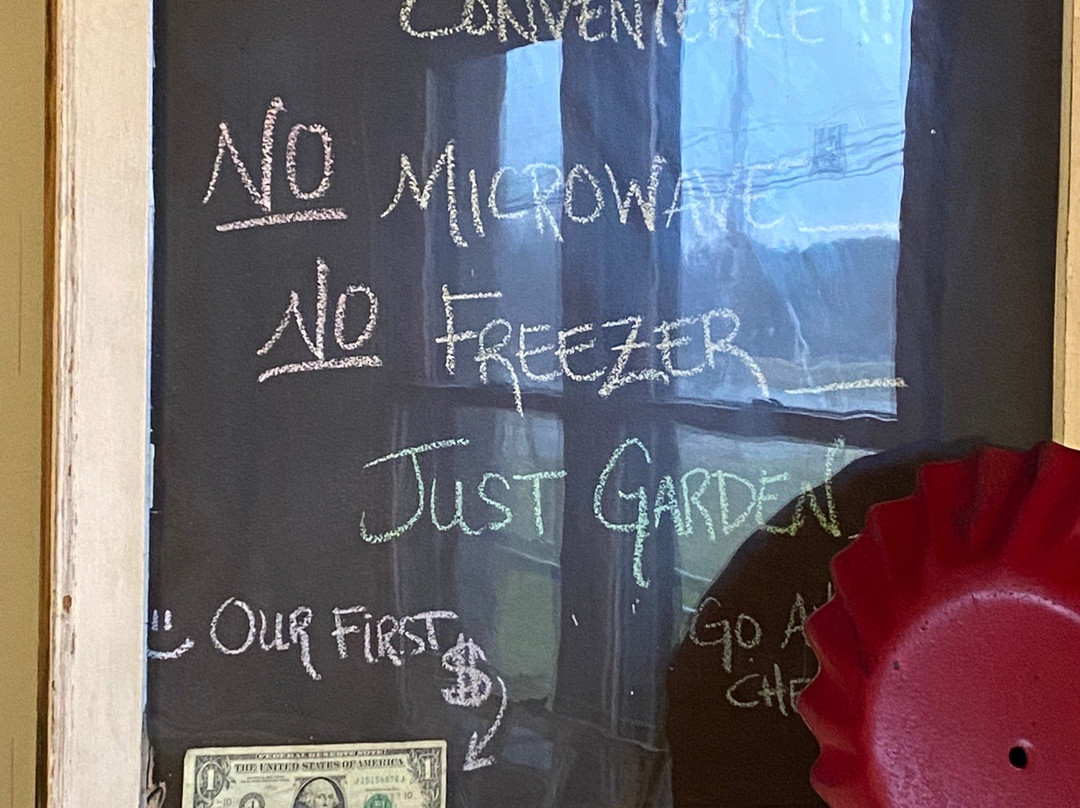 CONVENIENCE !!
NO MICROWAVE
NO FREEZER
JUST GARDEN
OUR FIRST $
GO
FEDERAL RESERVE NOTE
THE UNITED STATES OF AMERICA
1 1